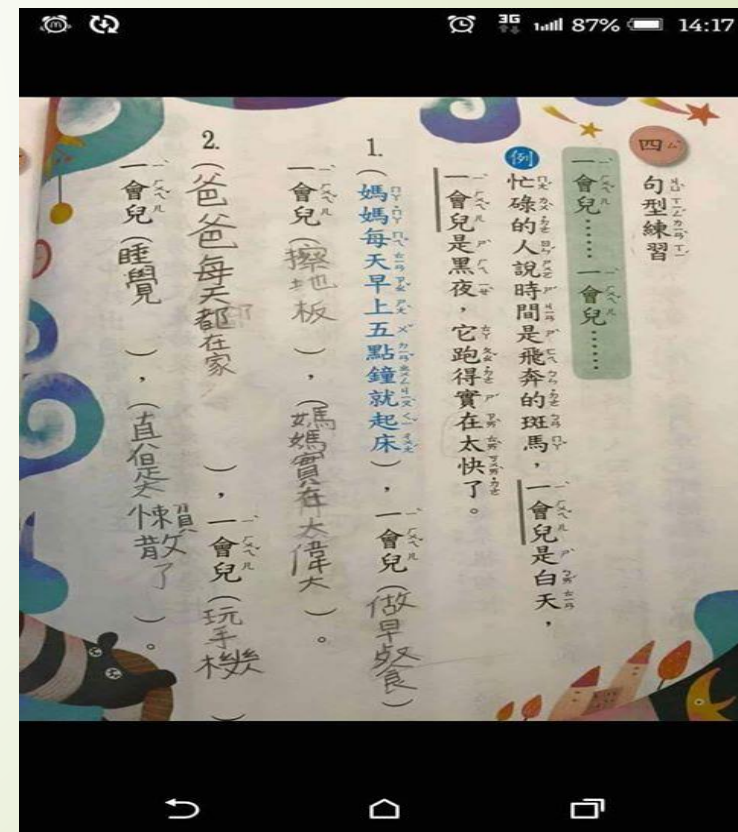 3G 87% 14:17
四
句型練習
一會兒……一會兒……
例
忙碌的人說時間是飛奔的斑馬，一會兒是白天，
一會兒是黑夜，它跑得實在太快了。
1.
（媽媽每天早上五點鐘就起床），一會兒（做早餐）
一會兒（擦地板），（媽媽實在太偉大）。
2.
（爸爸每天都在家），一會兒（玩手機）
一會兒（睡覺），（真是太懶散了）。